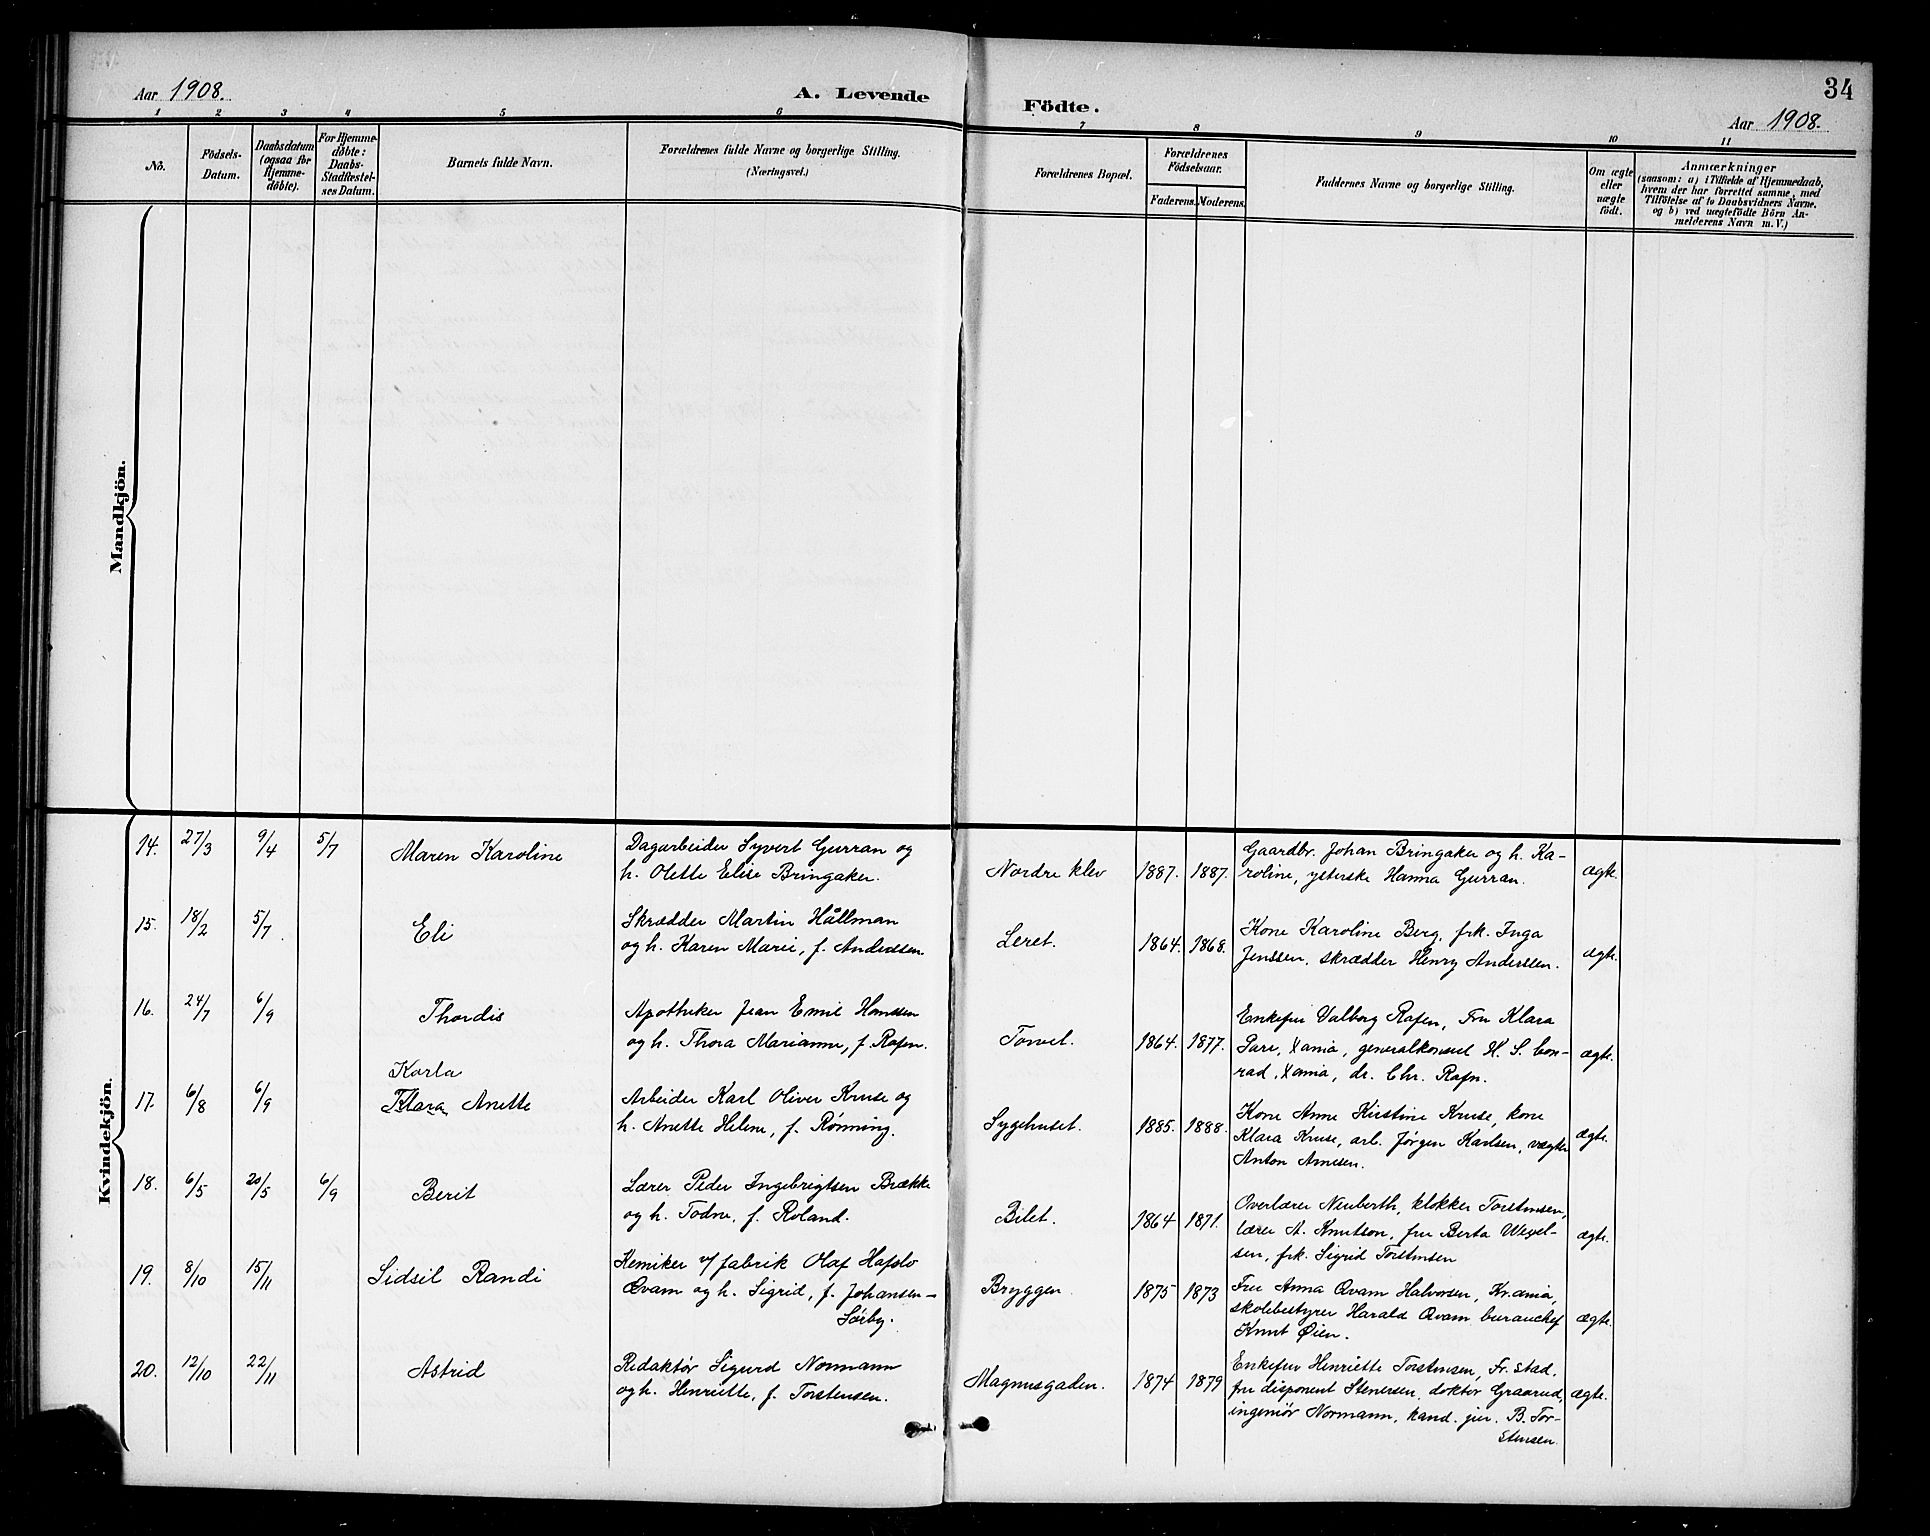 34
Aar 1908.
A. Levende Födte.
Aar 1908.
1 2 3 4 5 6 7 8 9 10 11
No.
Födsels-
Datum.
Daabsdatum
(ogsaa for
Hjemme-
döbte).
For Hjemme-
döbte:
Daabs-
Stadfæstel-
ses Datum.
Barnets fulde Navn.
Forældrenes fulde Navne og borgerlige Stilling.
(Næringsvei.)
Forældrenes Bopæl.
Forældrenes
Födselsaar.
Faderens. Moderens.
Faddernes Navne og borgerlige Stilling.
Om ægte
eller
uægte
födt.
Anmærkninger
(saasom: a) i Tilfælde af Hjemmedaab,
hvem der har forrettet samme, med
Tilföielse af to Daabsvidners Navne,
og b) ved uægtefödte Börn An-
melderens Navn m. V.)
Mandkjön.
Kvindekjön.
14. 27/3 9/4 5/7 Maren Karoline
Dagarbeider Syvert Gurran og
h. Olette Elise Bringaker.
Nordre klev 1887. 1887.
Gaardbr. Johan Bringaker og h. Ka-
roline, ysterske Hanna Gurran.
ægte.
15. 18/2 5/7. Eli
Skrædder Martin Hållman
og h. Karen Marie, f. Anderssen
Leret. 1864. 1868.
Kone Karoline Berg, frk. Inga
Jenssen, skrædder Henry Anderssen.
ægte.
16. 24/7 6/9 Thordis
Apotheker Jean Emil Hanssen
og h. Thora Marianne, f. Rafen.
Torvet. 1864. 1877.
Enkefru Valborg Rafen, Fru Klara
Pare, Xania, generalkonsul H. S. Con-
rad, Xania, dr. Chr. Rafn.
ægte.
Karla
17. 6/8 6/9 Klara Anette
Arbeider Karl Oliver Kruse og
h. Anette Helene, f. Rønning.
Sygehuset. 1885. 1888.
Kone Anne Kirstine Kruse, kone
Klara Kruse, arb. Jørgen Karlsen, vægter
Anton Arnesen.
ægte.
18. 6/5 20/5 6/9 Berit
Lærer Peder Ingebrigtsen Brække
og h. Todne, f. Roland.
Bilet. 1864 1871.
Overlærer Neuberth, klokker Torstensen,
lærer A. Knutson, fru Berta Wexel-
sen, frk. Sigrid Torstensen
ægte.
19. 8/10 15/11 Sidsil Randi
Kemiker v/ fabrik Olaf Hafslo
Qvam og h. Sigrid, f. Johansen-
Sørby.
Bryggen. 1875 1873
Fru Anna Qvam Halvorsen, Kr.ania,
skolebestyrer Harald Qvam burauchef
Knut Øien.
ægte.
20. 12/10 22/11 Astrid
Redaktør Sigurd Normann
og h. Henriette, f. Torstensen.
Magnusgaden. 1874 1879
Enkefru Henriette Torstensen, Fr.stad,
fru disponent Stenersen, doktor Graarud,
ingeniør Normann, kand. jur. B. Tor-
stensen.
ægte.